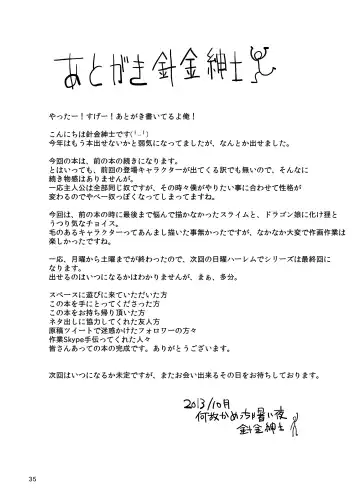 あとがき 針金紳士
やったー！すげー！あとがき書いてるよ俺！
こんにちは針金紳士です(╹_╹)
今年はもう本出せないかと弱気になってましたが、なんとか出せました。
今回の本は、前の本の続きになります。
とはいっても、前回の登場キャラクターが出てくる訳でも無いので、そんなに
続き物感はありませんが。
一応主人公は全部同じ奴ですが、その時々僕がやりたい事に合わせて性格が
変わるのでやべー奴っぽくなってしまってますね。
今回は、前の本の時に最後まで悩んで描かなかったスライムと、ドラゴン娘に化け狸と
うつり気なチョイス。
毛のあるキャラクターってあんまし描いた事無かったですが、なかなか大変で作画作業は
楽しかったですね。
一応、月曜から土曜までが終わったので、次回の日曜ハーレムでシリーズは最終回に
なります。
出せるのはいつになるかはわかりませんが、まぁ、多分。
スペースに遊びに来ていただいた方
この本を手にとってくださった方
この本をお持ち帰り頂いた方
ネタ出しに協力してくれた友人方
原稿ツイートで迷惑かけたフォロワーの方々
作業Skype手伝ってくれた人々
皆さんあっての本の完成です。ありがとうございます。
次回はいつになるか未定ですが、またお会い出来るその日をお待ちしております。
2013/10月
何故かめっちゃ暑い夜
針金紳士
35